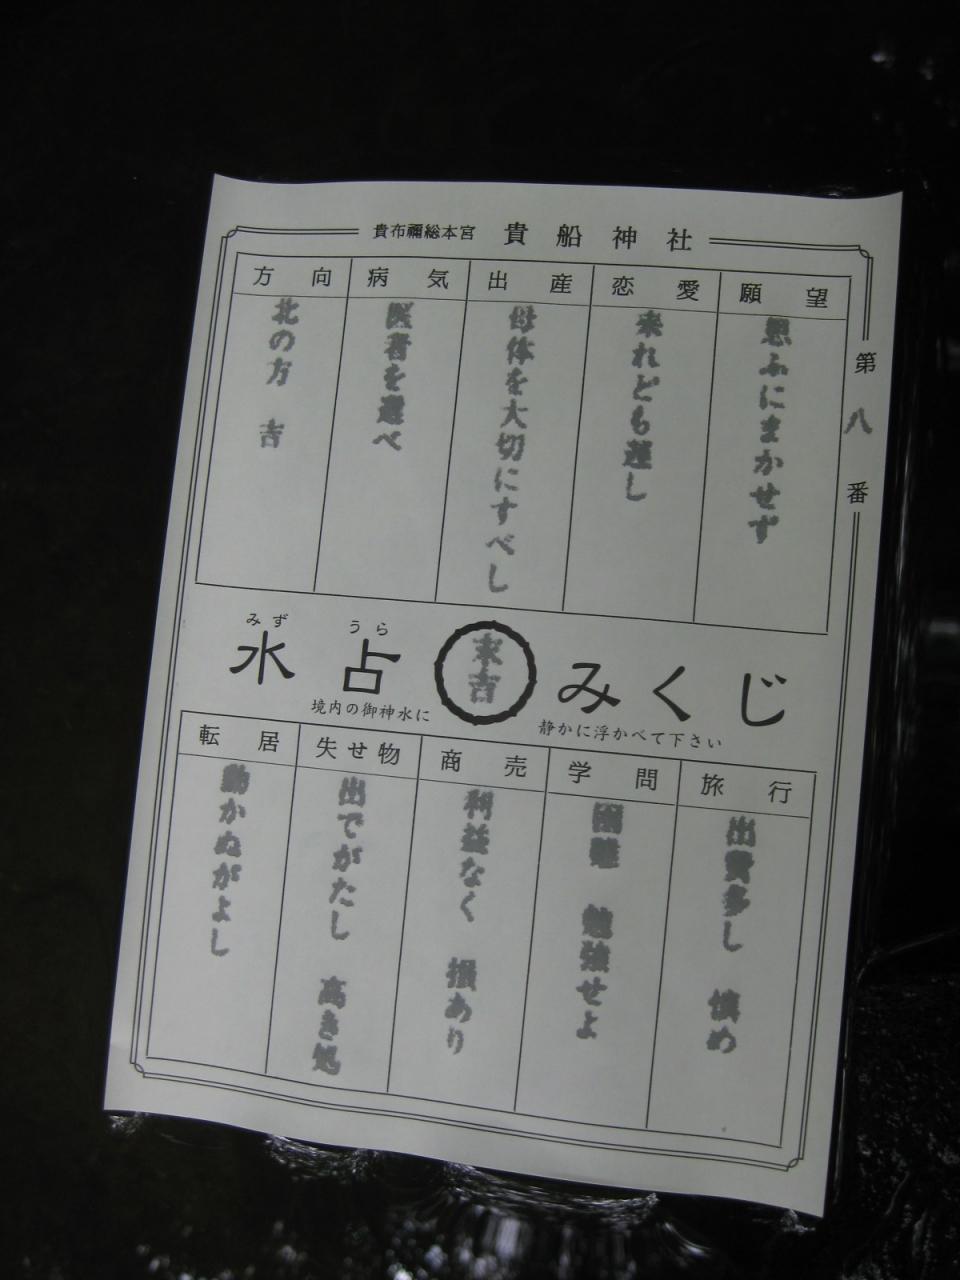 貴布禰総本宮 貴船神社
第八番
願望
思ふにまかせず
恋愛
来れども遅し
出産
母体を大切にすべし
病気
医者を選べ
方向
北の方 吉
みず うら
水占みくじ
末吉
境内の御神水に
静かに浮かべて下さい
旅行
出費多し 慎め
学問
困難 勉強せよ
商売
利益なく 損あり
失せ物
出でがたし 高き処
転居
動かぬがよし